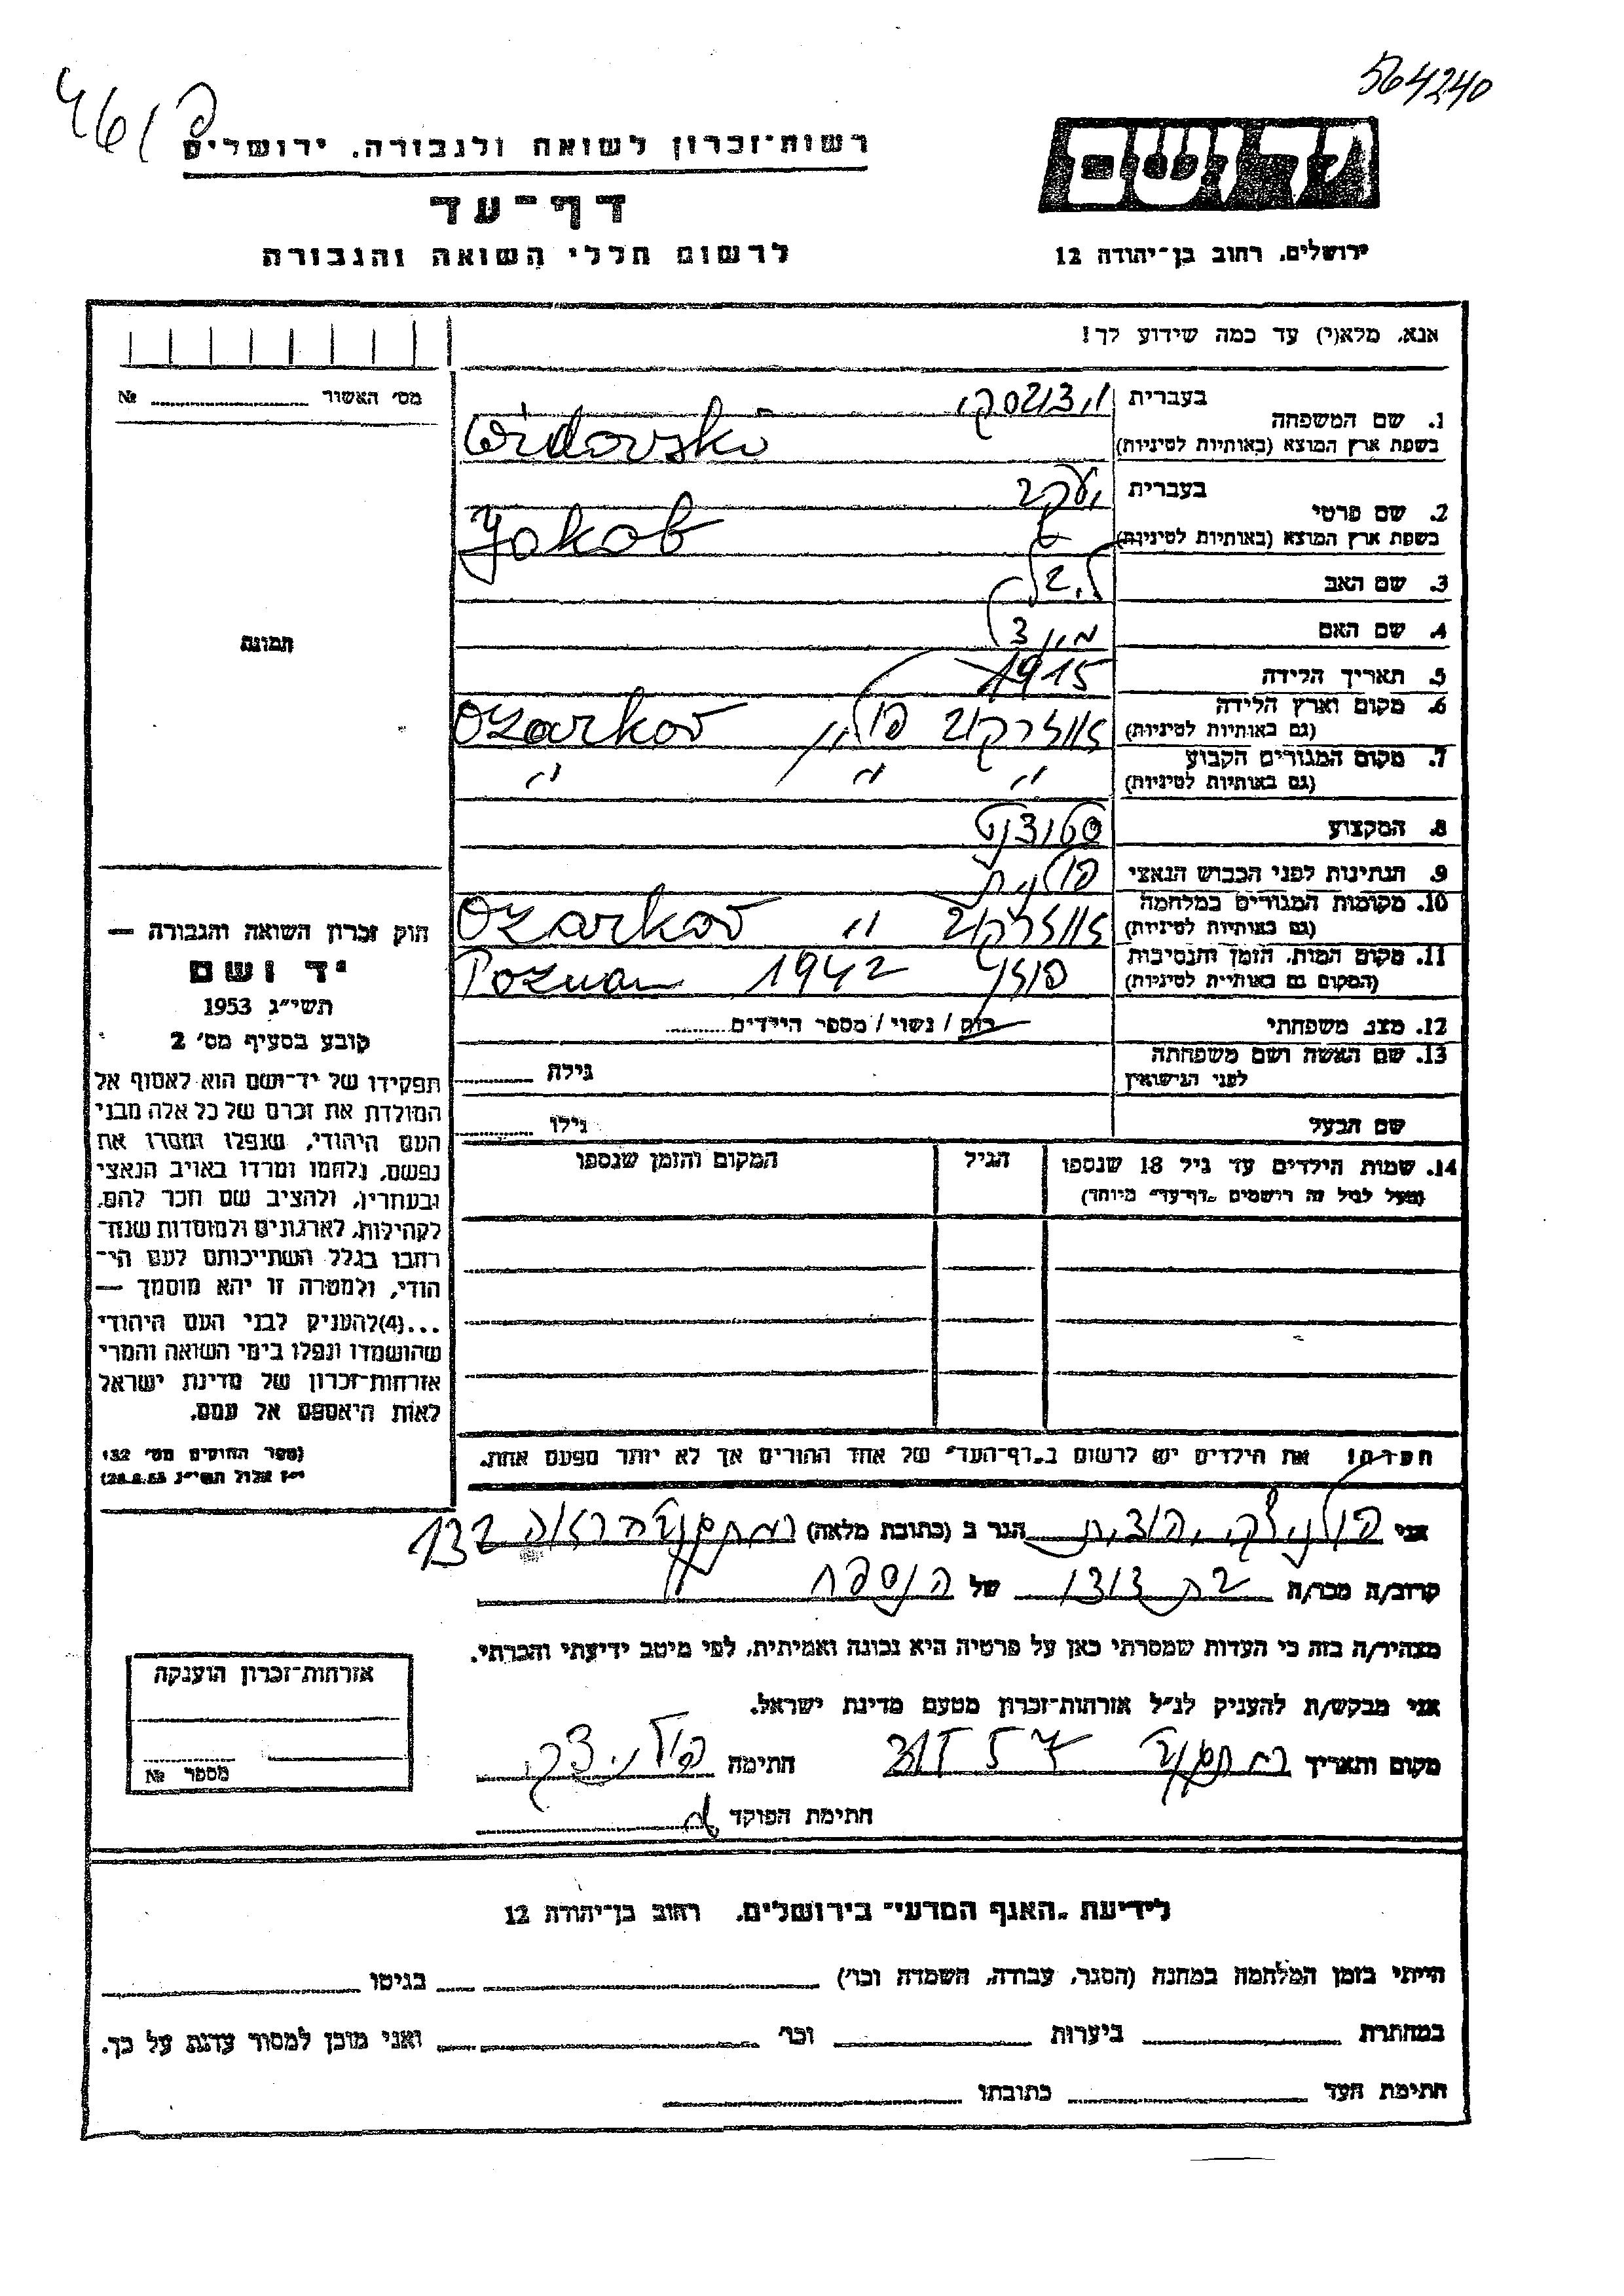 564240
461
רשות־זכרון לשואה ולגבורה, ירושלים
דף־עד
לרשום חללי השואה והגבורה
יד ושם
ירושלים, רחוב בן־יהודה 12
אנא, מלא(י) עד כמה שידוע לך!
מס׳ האשור №
תמונה
1. שם המשפחה בעברית וידובסקי
בשפת ארץ המוצא (באותיות לטיניות) Widovski
2. שם פרטי בעברית יעקב
בשפת ארץ המוצא (באותיות לטיניות) Jakob
3. שם האב
4. שם האם
5. תאריך הלידה 1915
6. מקום וארץ הלידה (גם באותיות לטיניות) אוזרקוב פולין Ozarkov
7. מקום המגורים הקבוע (גם באותיות לטיניות) " " "
8. המקצוע סטודנט
9. הנתינות לפני הכבוש הנאצי פולנית
10. מקומות המגורים במלחמה (גם באותיות לטיניות) אוזרקוב " Ozarkov
11. מקום המות, הזמן והנסיבות (המקום גם באותיות לטיניות) פוזן 1942 Poznan
12. מצב משפחתי רוק / נשוי / מספר הילדים
13. שם האשה ושם משפחתה לפני הנישואין גילה
שם הבעל גילו
14. שמות הילדים עד גיל 18 שנספו הגיל המקום והזמן שנספו
(מעל לגיל זה רושמים „דף־עד״ מיוחד)
חוק זכרון השואה והגבורה —
יד ושם
תשי״ג 1953
קובע בסעיף מס׳ 2
תפקידו של יד־ושם הוא לאסוף אל
המולדת את זכרם של כל אלה מבני
העם היהודי, שנפלו ומסרו את
נפשם, נלחמו ומרדו באויב הנאצי
ובעוזריו, ולהציב שם וזכר להם,
לקהילות, לארגונים ולמוסדות שנח־
רבו בגלל השתייכותם לעם הי־
הודי, ולמטרה זו יהא מוסמך —
...(4)להעניק לבני העם היהודי
שהושמדו ונפלו בימי השואה והמרי
אזרחות־זכרון של מדינת ישראל
לאות היאספם אל עמם.
(ספר החוקים מס׳ 132
י״ז אלול תשי״ג 28.8.53)
הערה! את הילדים יש לרשום ב„דף־העד״ של אחד ההורים אך לא יותר מפעם אחת.
אני יהודית הגר ב (כתובת מלאה) רמת גן הרואה 132
קרוב/ה מכר/ה בת דודו של הנספה
מצהיר/ה בזה כי העדות שמסרתי כאן על פרטיה היא נכונה ואמיתית, לפי מיטב ידיעתי והכרתי.
אני מבקש/ת להעניק לנ״ל אזרחות־זכרון מטעם מדינת ישראל.
מקום ותאריך רמת גן חתימה
חתימת הפוקד
אזרחות־זכרון הוענקה
מספר №
לידיעת „האגף המדעי״ בירושלים, רחוב בן־יהודה 12
הייתי בזמן המלחמה במחנה (הסגר, עבודה, השמדה וכו׳) בגיטו
במחתרת ביערות וכו׳ ואני מוכן למסור עדות על כך.
חתימת העד כתובתו